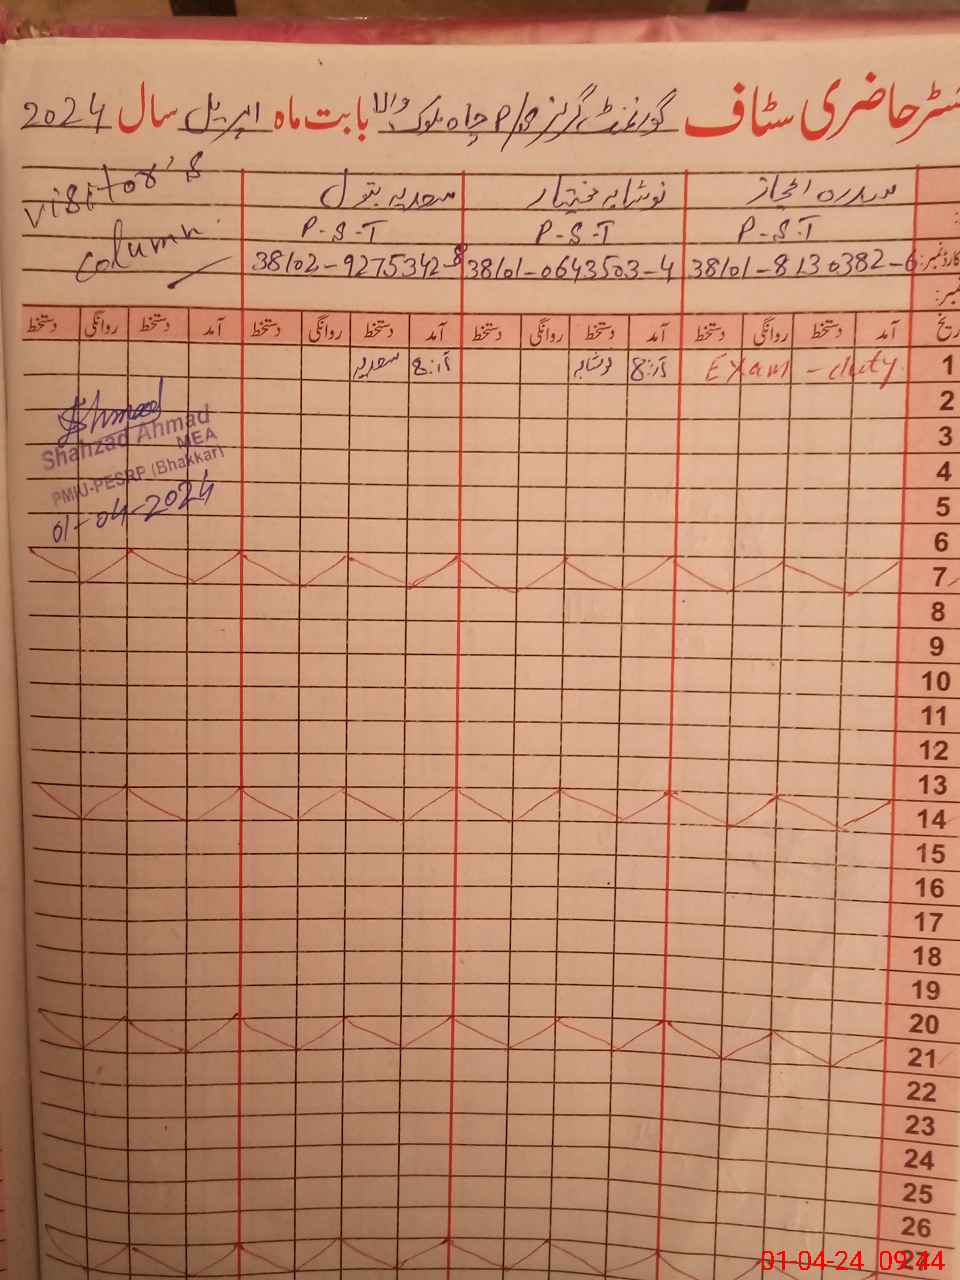 رجسٹر حاضری سٹاف گورنمنٹ گرلز P/S چاہ ملوک والا بابت ماہ اپریل سال 2024
سدرہ اعجاز نوشابہ مختیار سعدیہ بتول Visitor's
P-S-T P-S-T P-S-T column
38101-8130382-6 38101-0643503-4 38102-9275342-8
تاریخ آمد دستخط روانگی دستخط آمد دستخط روانگی دستخط آمد دستخط روانگی دستخط آمد دستخط روانگی دستخط
1 Exam - duty 8: نوشابہ 8: سعدیہ
2
3
4
5
6
7
8
9
10
11
12
13
14
15
16
17
18
19
20
21
22
23
24
25
26
27
Shahzad Ahmad
MEA
PMIU-PESRP (Bhakkar)
01-04-2024
01-04-24 09:44